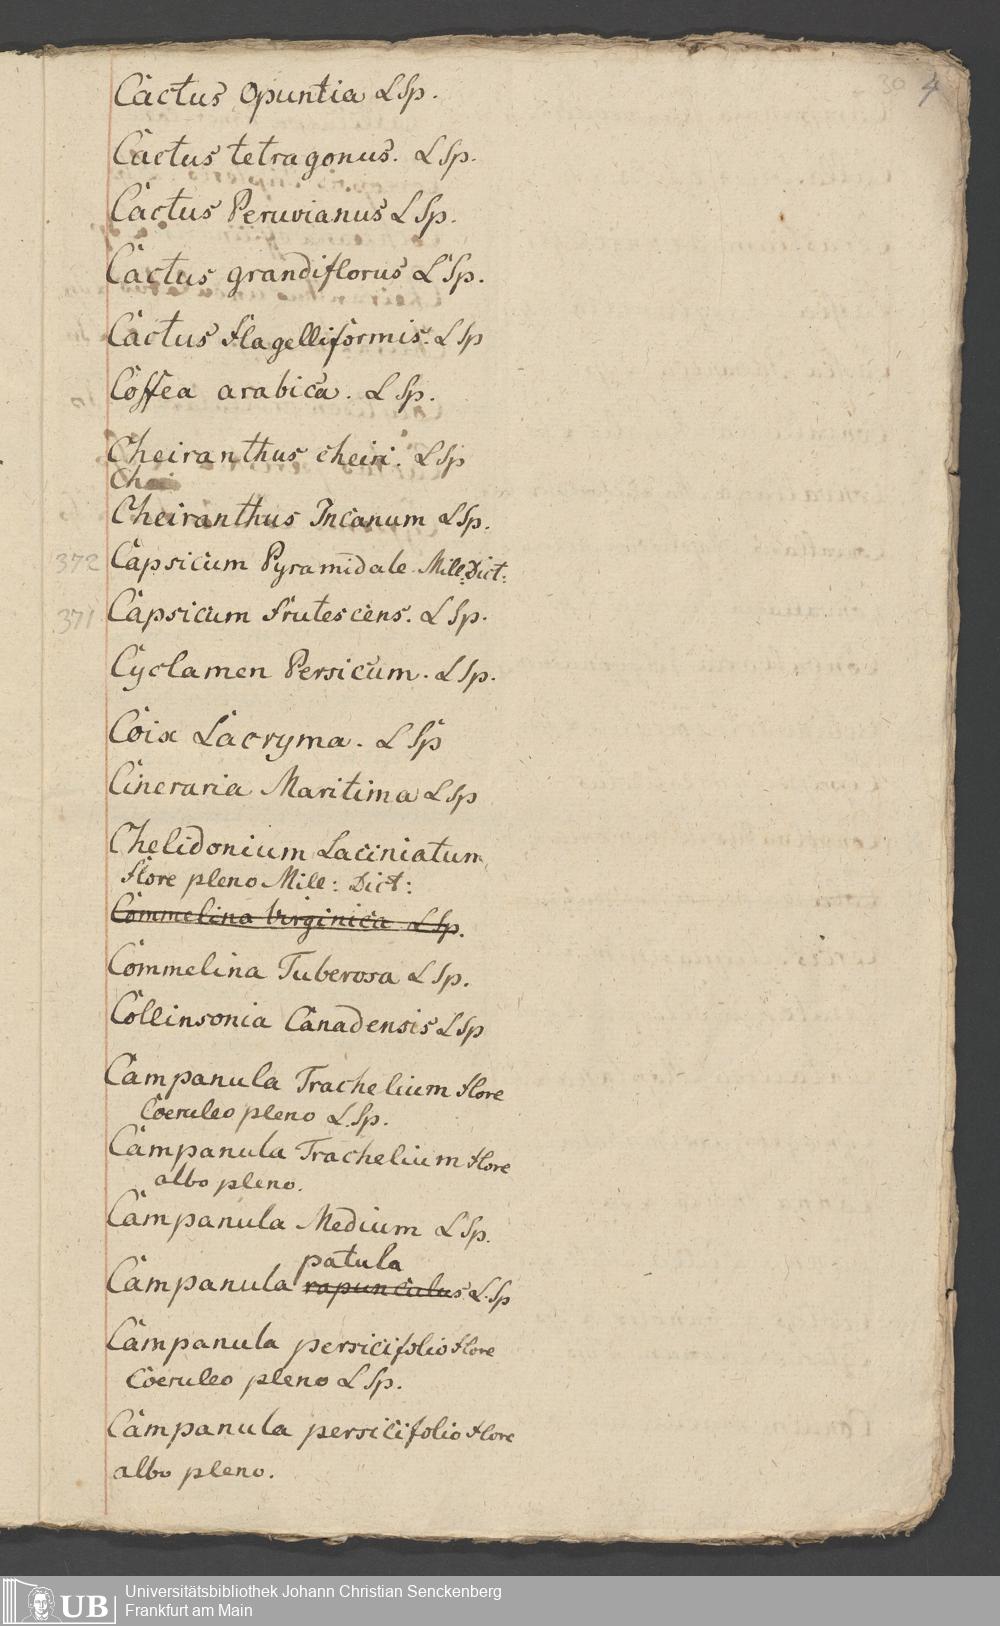 30 4
Cactus Opuntia L Sp.
Cactus tetragonus. L Sp.
Cactus Peruvianus L Sp.
Cactus grandiflorus L Sp.
Cactus flagelliformis. L Sp
Coffea arabica. L Sp.
Cheiranthus cheiri. L Sp
Chei
Cheiranthus Incanum L Sp.
372 Capsicum Pyramidale Mill: Dict:
371 Capsicum frutescens. L Sp.
Cyclamen Persicum. L Sp.
Coix Lacryma. L Sp
Cineraria Maritima L Sp
Chelidonium Laciniatum
flore pleno Mill: Dict:
Commelina Virginica L Sp.
Commelina Tuberosa L Sp.
Collinsonia Canadensis L Sp
Campanula Trachelium flore
Coeruleo pleno L. Sp.
Campanula Trachelium flore
albo pleno.
Campanula Medium L Sp.
patula
Campanula rapunculus L. Sp
Campanula persicifolio flore
Coeruleo pleno L Sp.
Campanula persicifolio flore
albo pleno.
UB
Universitätsbibliothek Johann Christian Senckenberg
Frankfurt am Main